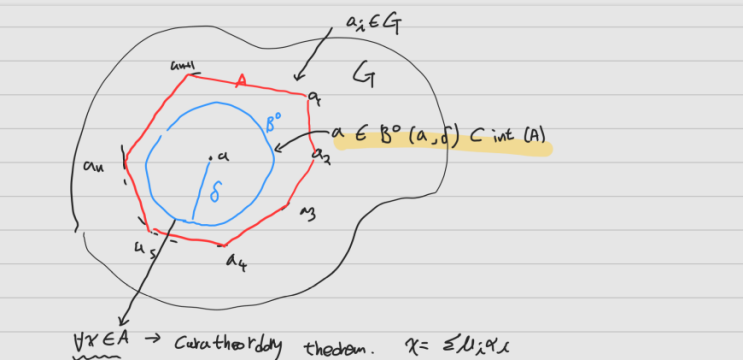 aᵢ ∈ G
G
aₙ₊₁
A
a₁
B°
a ∈ B° (a, δ) ⊂ int (A)
a
a₂
aₙ
δ
a₃
a₅
a₄
∀x ∈ A → Caratheordory theorem. x = Σμᵢxᵢ